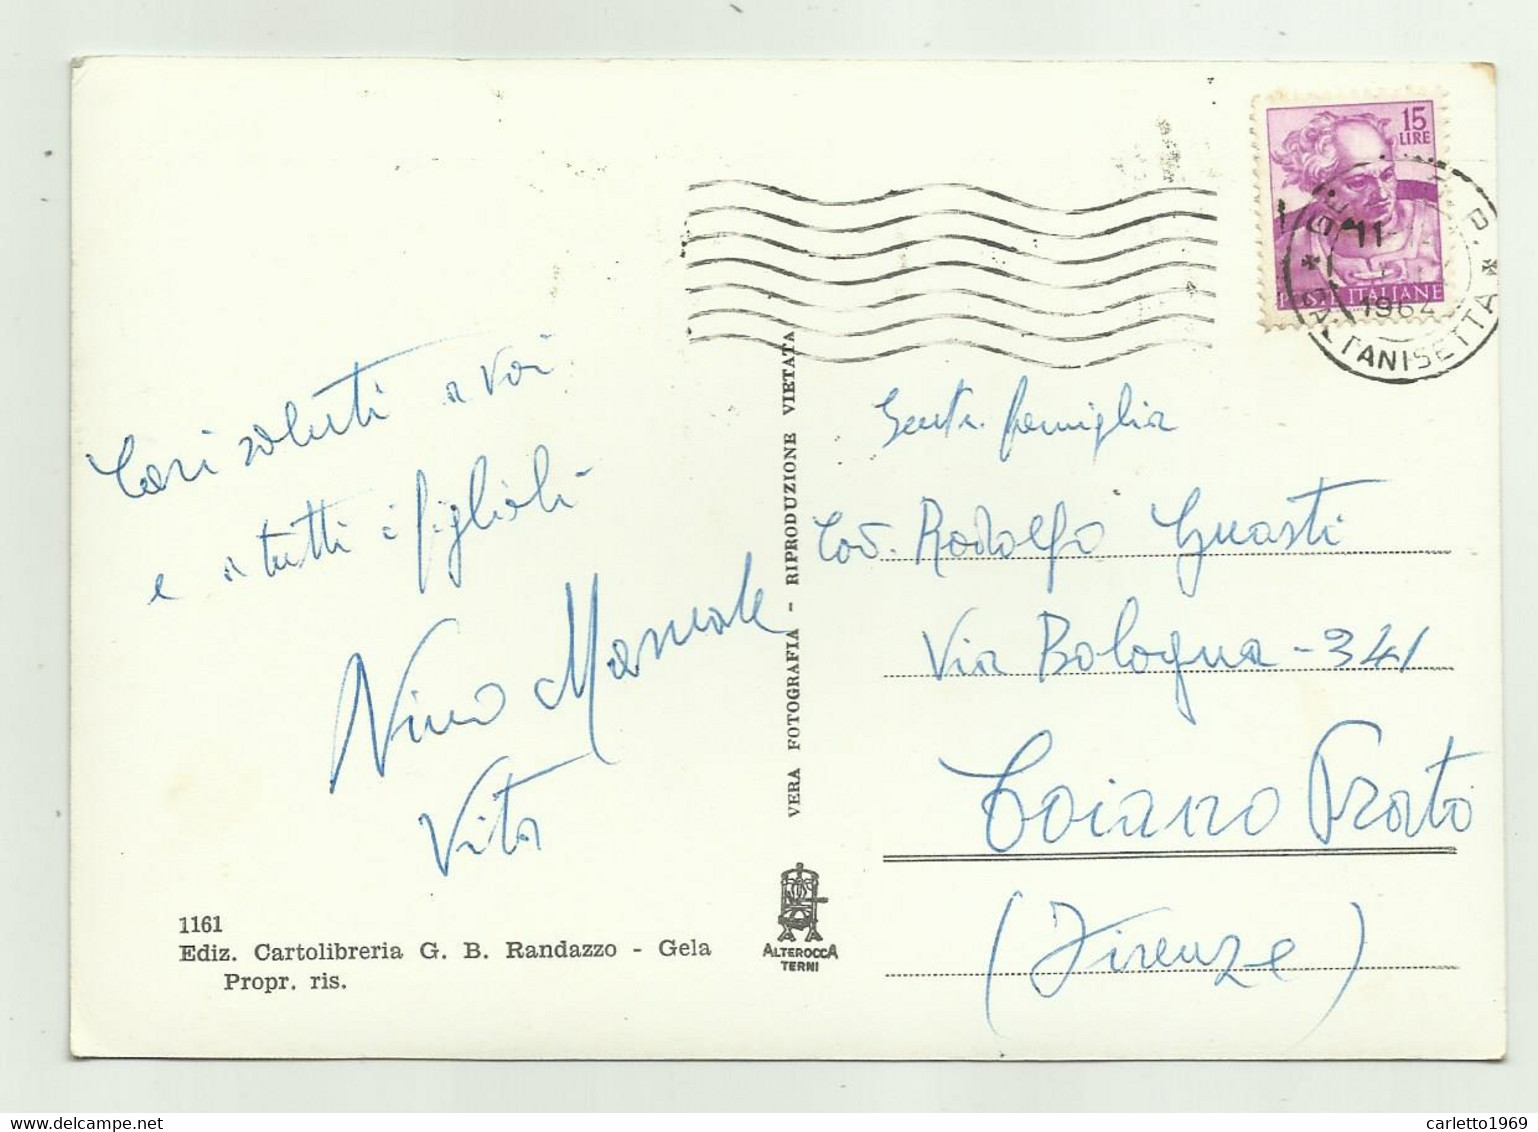 Cari saluti a voi
e a tutti i figlioli
Nino
Vita
1161
Ediz. Cartolibreria G. B. Randazzo - Gela
Propr. ris.
VERA FOTOGRAFIA - RIPRODUZIONE VIETATA
ALTEROCCA
TERNI
15
LIRE
POSTE ITALIANE
GELA
CALTANISETTA
Gent. famiglia
Cav. Rodolfo Guasti
Via Bologna - 341
Coiano Prato
(Firenze)
carletto1969